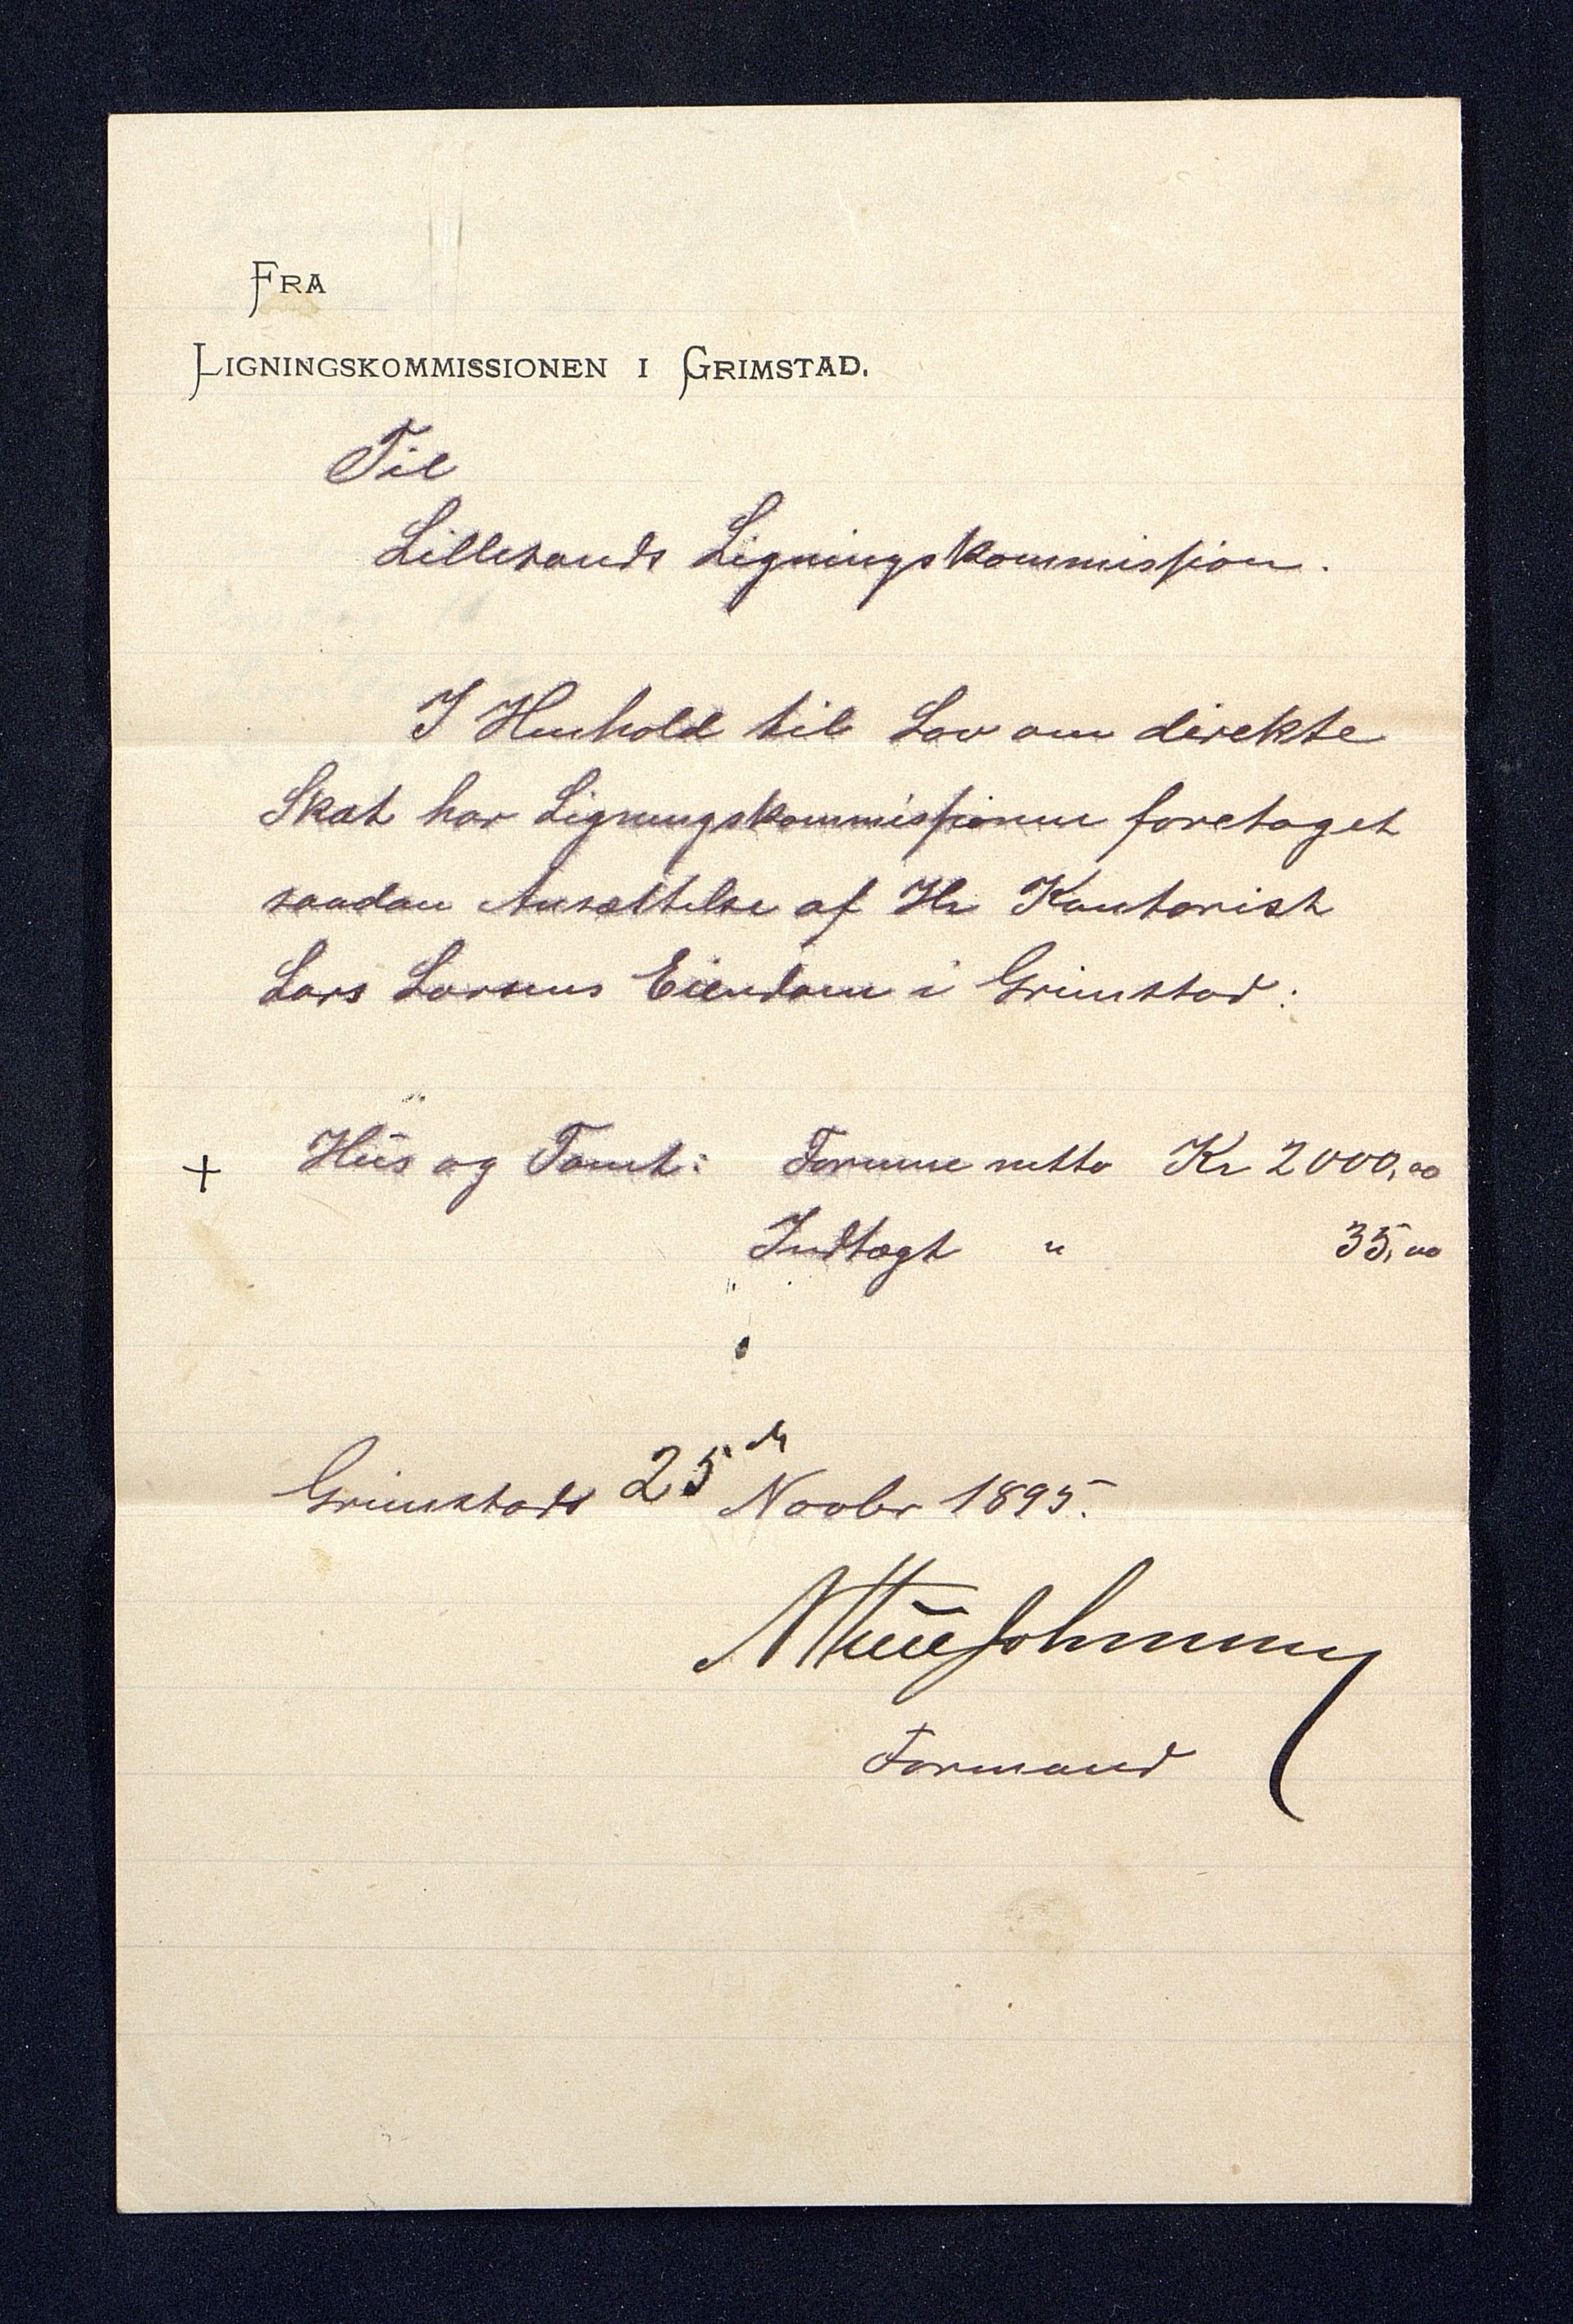 FRA
LIGNINGSKOMMISSIONEN I GRIMSTAD.
Til
Lillesands Ligningskommission.
I Henhold til Lov om direkte
Skat har Ligningskommissionen foretaget
saadan Ansættelse af Hr Kontorist
Lars Larsens Eiendom i Grimstad:
+ Hus og Tomt: Formue netto Kr 2000,00
Indtægt " 35,00
Grimstad 25 Novbr 1895.
Formand